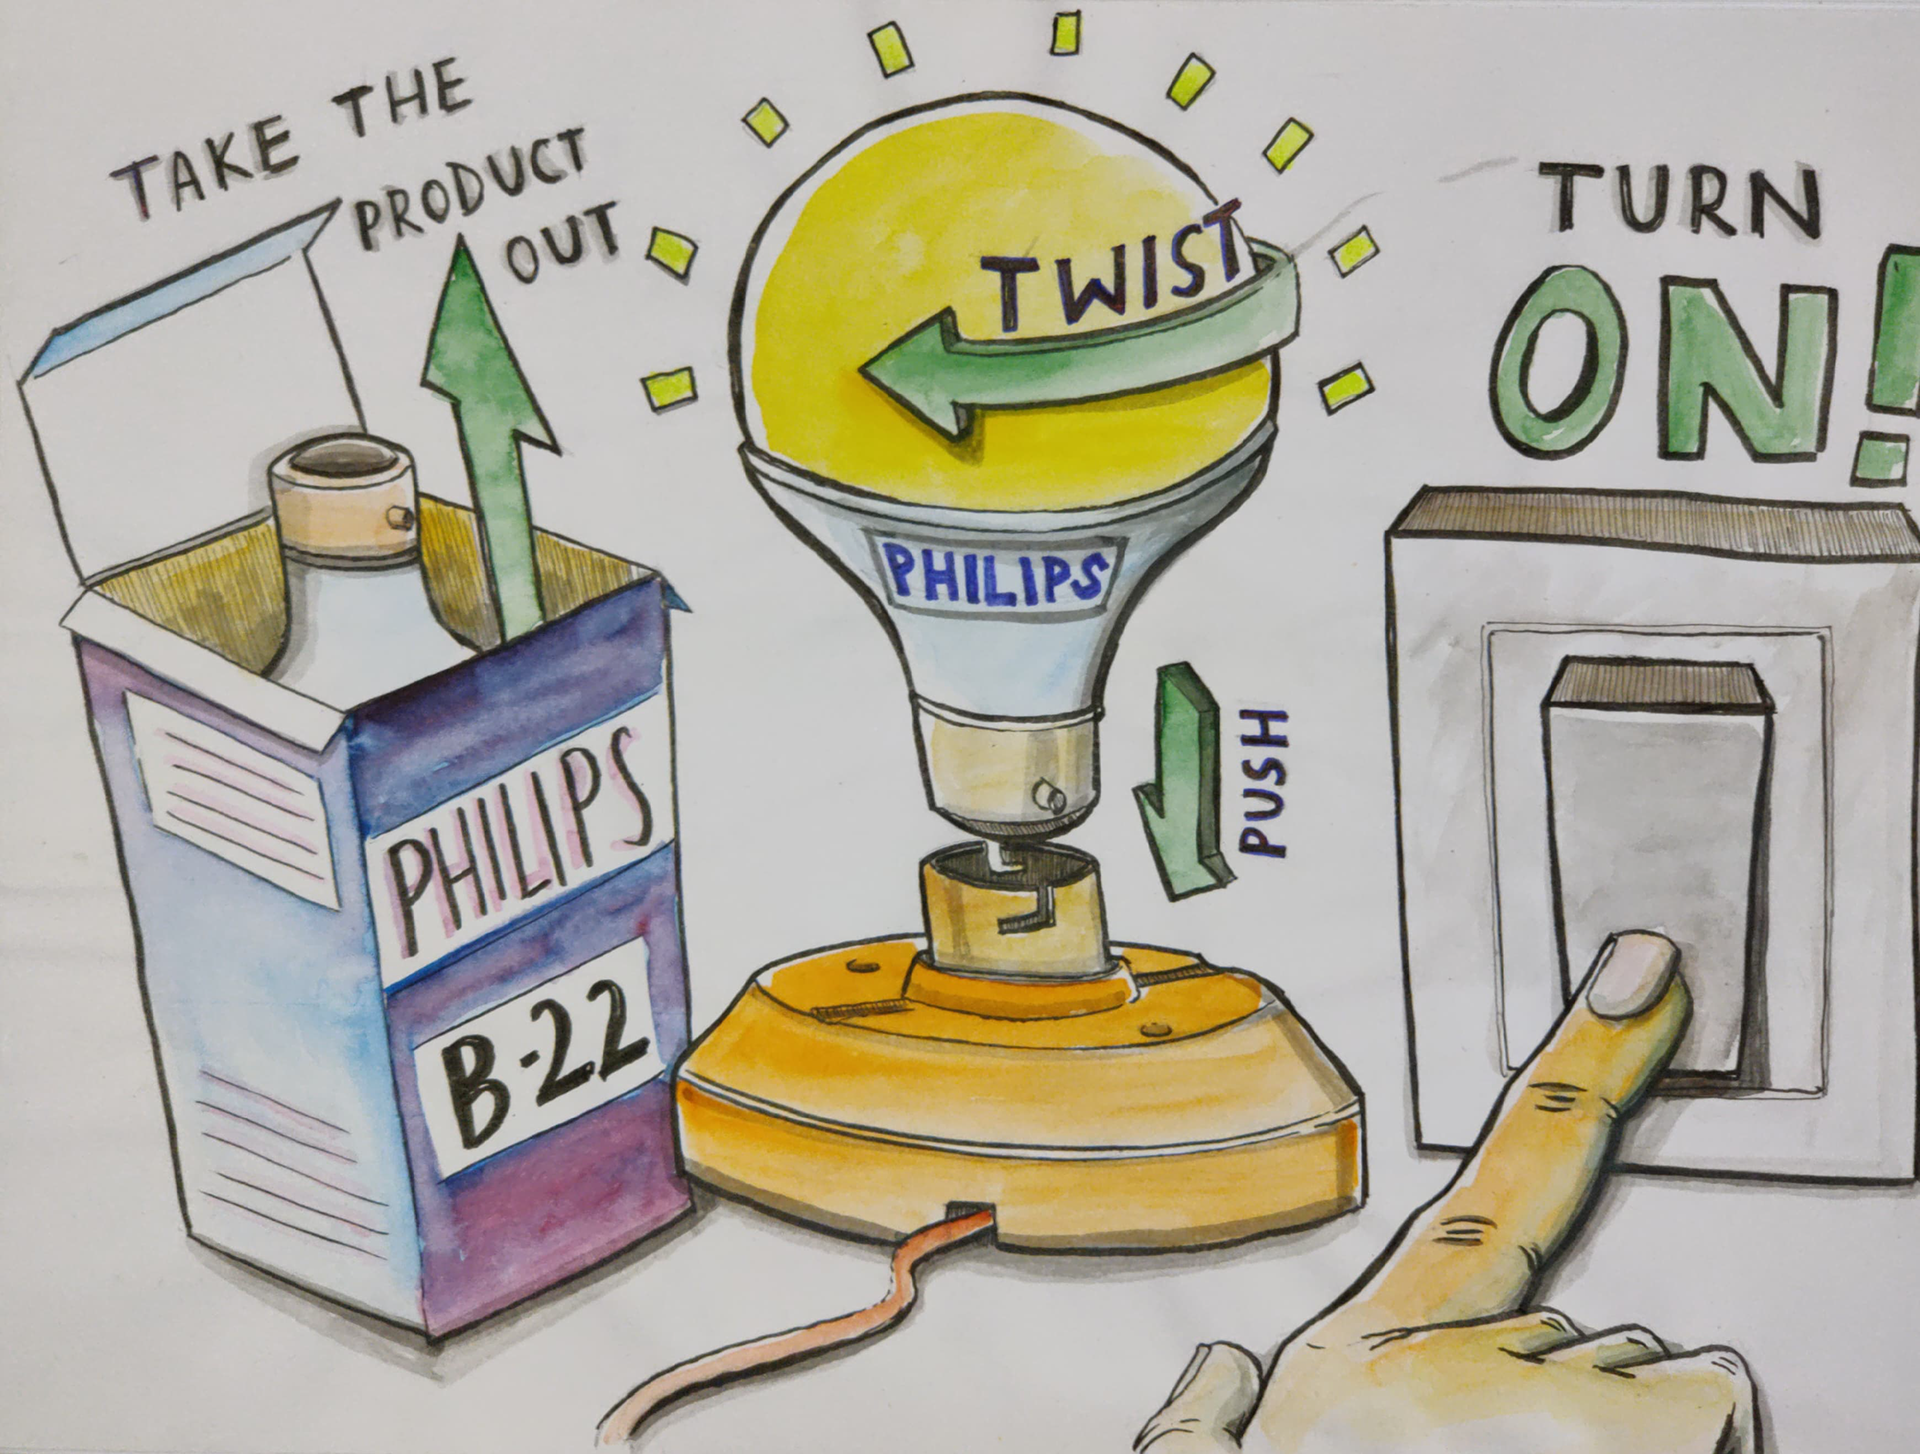 TAKE THE
PRODUCT
OUT
PHILIPS
B-22
TWIST
PHILIPS
PUSH
TURN
ON!